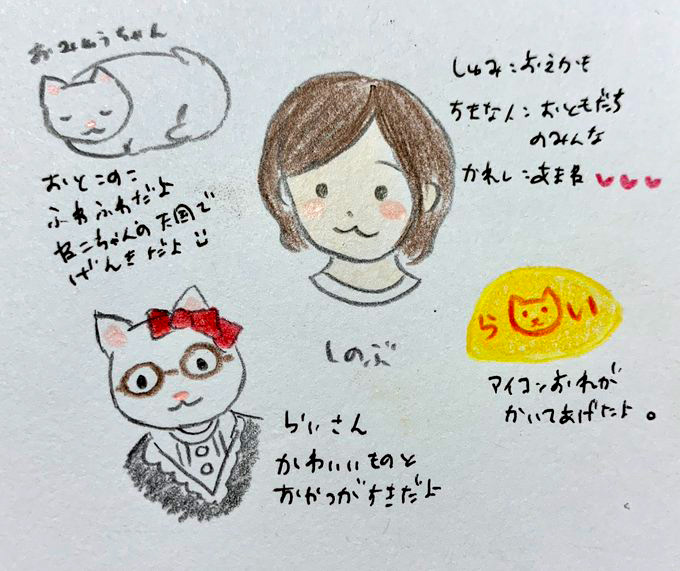 おみゅうちゃん
おとこのこ
ふわふわだよ
ねこちゃんの天国で
げんきだよ
しゅみ：おえかき
ちきな人：おともだち
のみんな
かれし：あまね
しのぶ
ら い
アイコンおれが
かいてあげたよ。
らいさん
かわいいものと
おやつがすきだよ